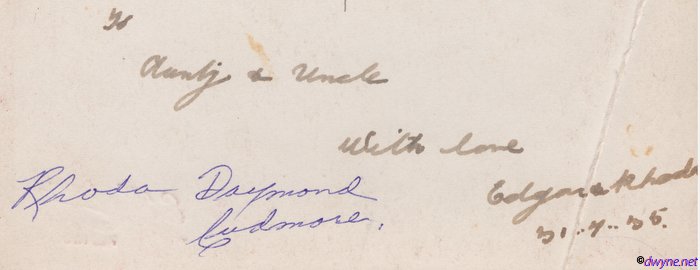 To
Aunty & Uncle
With love
Edgar & Rhoda
31.7.35.
Rhoda Daymond
Cudmore.
©dwyne.net